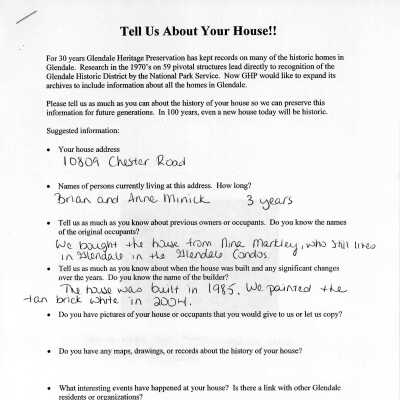 Tell Us About Your House!!
For 30 years Glendale Heritage Preservation has kept records on many of the historic homes in
Glendale. Research in the 1970's on 59 pivotal structures lead directly to recognition of the
Glendale Historic District by the National Park Service. Now GHP would like to expand its
archives to include information about all the homes in Glendale.
Please tell us as much as you can about the history of your house so we can preserve this
information for future generations. In 100 years, even a new house today will be historic.
Suggested information:
• Your house address
10809 Chester Road
• Names of persons currently living at this address. How long?
Brian and Anne Minick 3 years
• Tell us as much as you know about previous owners or occupants. Do you know the names
of the original occupants?
We bought the house from Nina Markley, who still lives
in Glendale in the Glendale Condos.
• Tell us as much as you know about when the house was built and any significant changes
over the years. Do you know the name of the builder?
The house was built in 1985. We painted the
tan brick white in 2004.
• Do you have pictures of your house or occupants that you would give to us or let us copy?
• Do you have any maps, drawings, or records about the history of your house?
• What interesting events have happened at your house? Is there a link with other Glendale
residents or organizations?